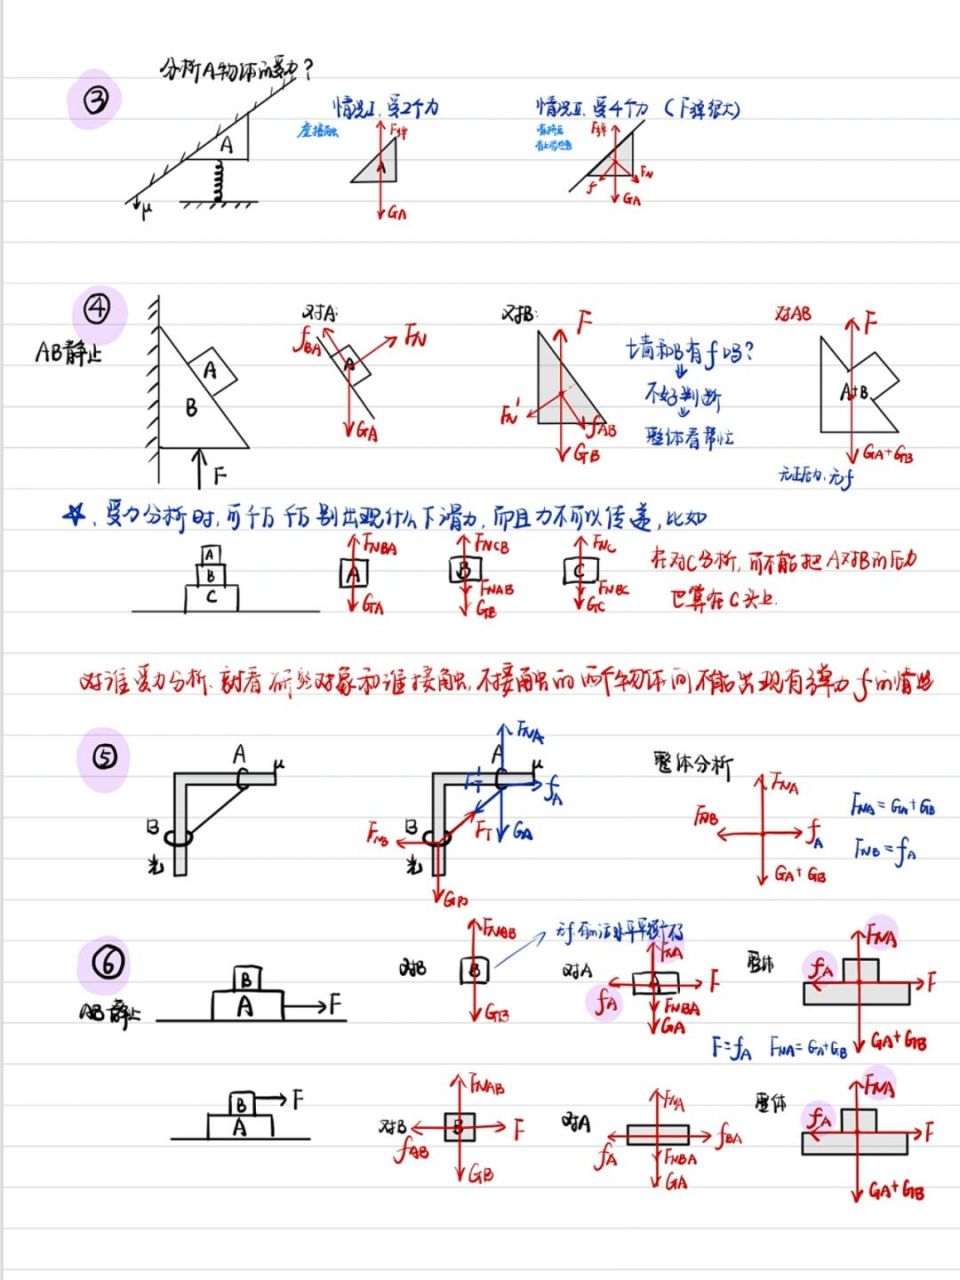 分析A物体的受力？
③
情况Ⅰ.受2个力
情况Ⅱ.受4个力 (F弹很大)
虚接触
F弹
A
GA
μ
F弹
FN
f
GA
A
④
AB静止
A
B
F
对A:
fBA
FN
A
GA
对B:
F
FN'
fAB
GB
墙和B有f吗?
不好判断
整体看帮忙
对AB
F
A+B
GA+GB
无压力,无f
☆.受力分析时,可千万千万别出现什么下滑力,而且力不可以传递,比如
A
B
C
FNBA
A
GA
FNCB
B
FNAB
GB
FNC
C
FNBC
GC
在对C分析,而不能把A对B的压力
也算在C头上.
对谁受力分析,就看研究对象和谁接触,不接触的两个物体间不能出现有弹力f的情况
⑤
A
μ
B
光
FNA
A
μ
FT'
fA
B
FNB
FT
GA
光
GB
整体分析
FNA
FNB
fA
GA+GB
FNA=GA+GB
FNB=fA
⑥
AB静止
B
A
F
对B
FNAB
B
GB
无f,有的话水平平衡不了
对A
FNA
A
F
fA
FNBA
GA
整体
FNA
fA
F
GA+GB
F=fA FNA=GA+GB
B
F
A
对B
FNAB
B
F
fAB
GB
对A
FNA
fA
fBA
FNBA
GA
整体
FNA
fA
F
GA+GB